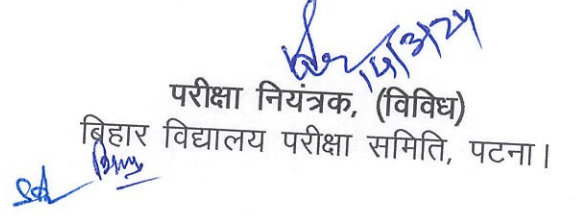 15/3/24
परीक्षा नियंत्रक, (विविध)
बिहार विद्यालय परीक्षा समिति, पटना।